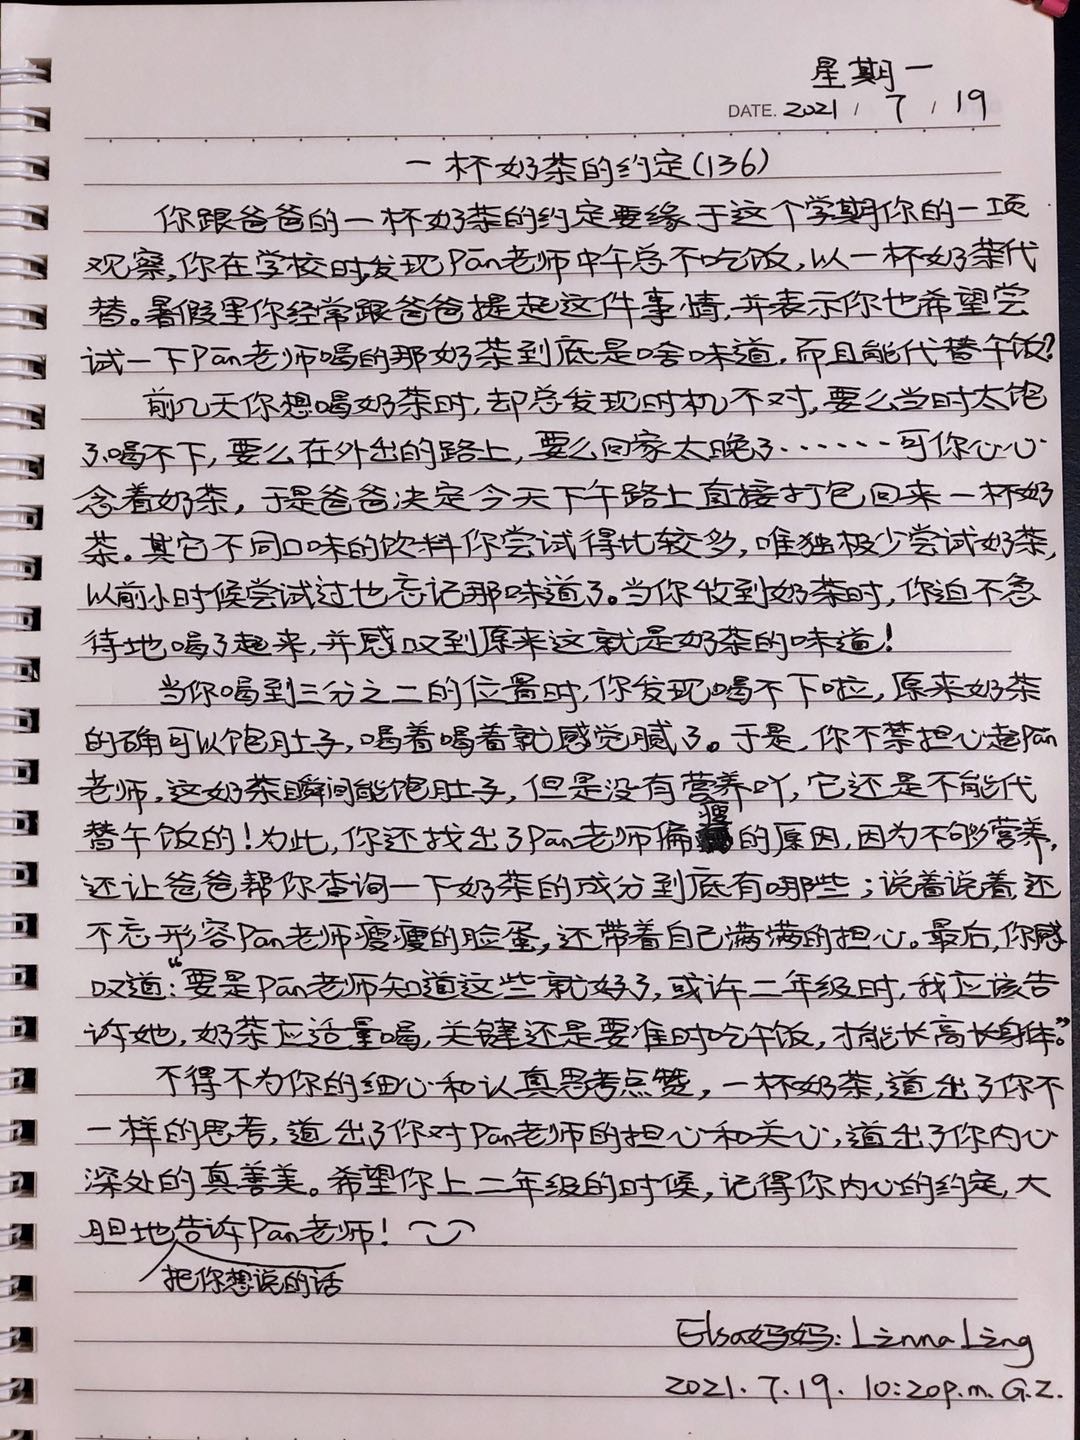 星期一
DATE. 2021 / 7 / 19
一杯奶茶的约定(136)
你跟爸爸的一杯奶茶的约定要缘于这个学期你的一项
观察,你在学校时发现Pān老师中午总不吃饭,以一杯奶茶代
替。暑假里你经常跟爸爸提起这件事情,并表示你也希望尝
试一下Pān老师喝的那奶茶到底是啥味道,而且能代替午饭?
前几天你想喝奶茶时,却总发现时机不对,要么当时太饱
了喝不下,要么在外出的路上,要么回家太晚了······可你心心
念着奶茶,于是爸爸决定今天下午路上直接打包回来一杯奶
茶。其它不同口味的饮料你尝试得比较多,唯独极少尝试奶茶,
以前小时候尝试过也忘记那味道了。当你收到奶茶时,你迫不急
待地喝了起来,并感叹到原来这就是奶茶的味道!
当你喝到三分之二的位置时,你发现喝不下啦,原来奶茶
的确可以饱肚子,喝着喝着就感觉腻了。于是,你不禁担心起Pān
老师,这奶茶瞬间能饱肚子,但是没有营养吖,它还是不能代
替午饭的!为此,你还找出了Pān老师偏瘦的原因,因为不够营养,
还让爸爸帮你查询一下奶茶的成分到底有哪些;说着说着,还
不忘形容Pān老师瘦瘦的脸蛋,还带着自己满满的担心。最后,你感
叹道:“要是Pān老师知道这些就好了,或许二年级时,我应该告
诉她,奶茶应适量喝,关键还是要准时吃午饭,才能长高长身体。”
不得不为你的细心和认真思考点赞,一杯奶茶,道出了你不
一样的思考,道出了你对Pān老师的担心和关心,道出了你内心
深处的真善美。希望你上二年级的时候,记得你内心的约定,大
胆地告诉Pān老师!
把你想说的话
Elsa妈妈:Linna Ling
2021.7.19. 10:20p.m. G.Z.